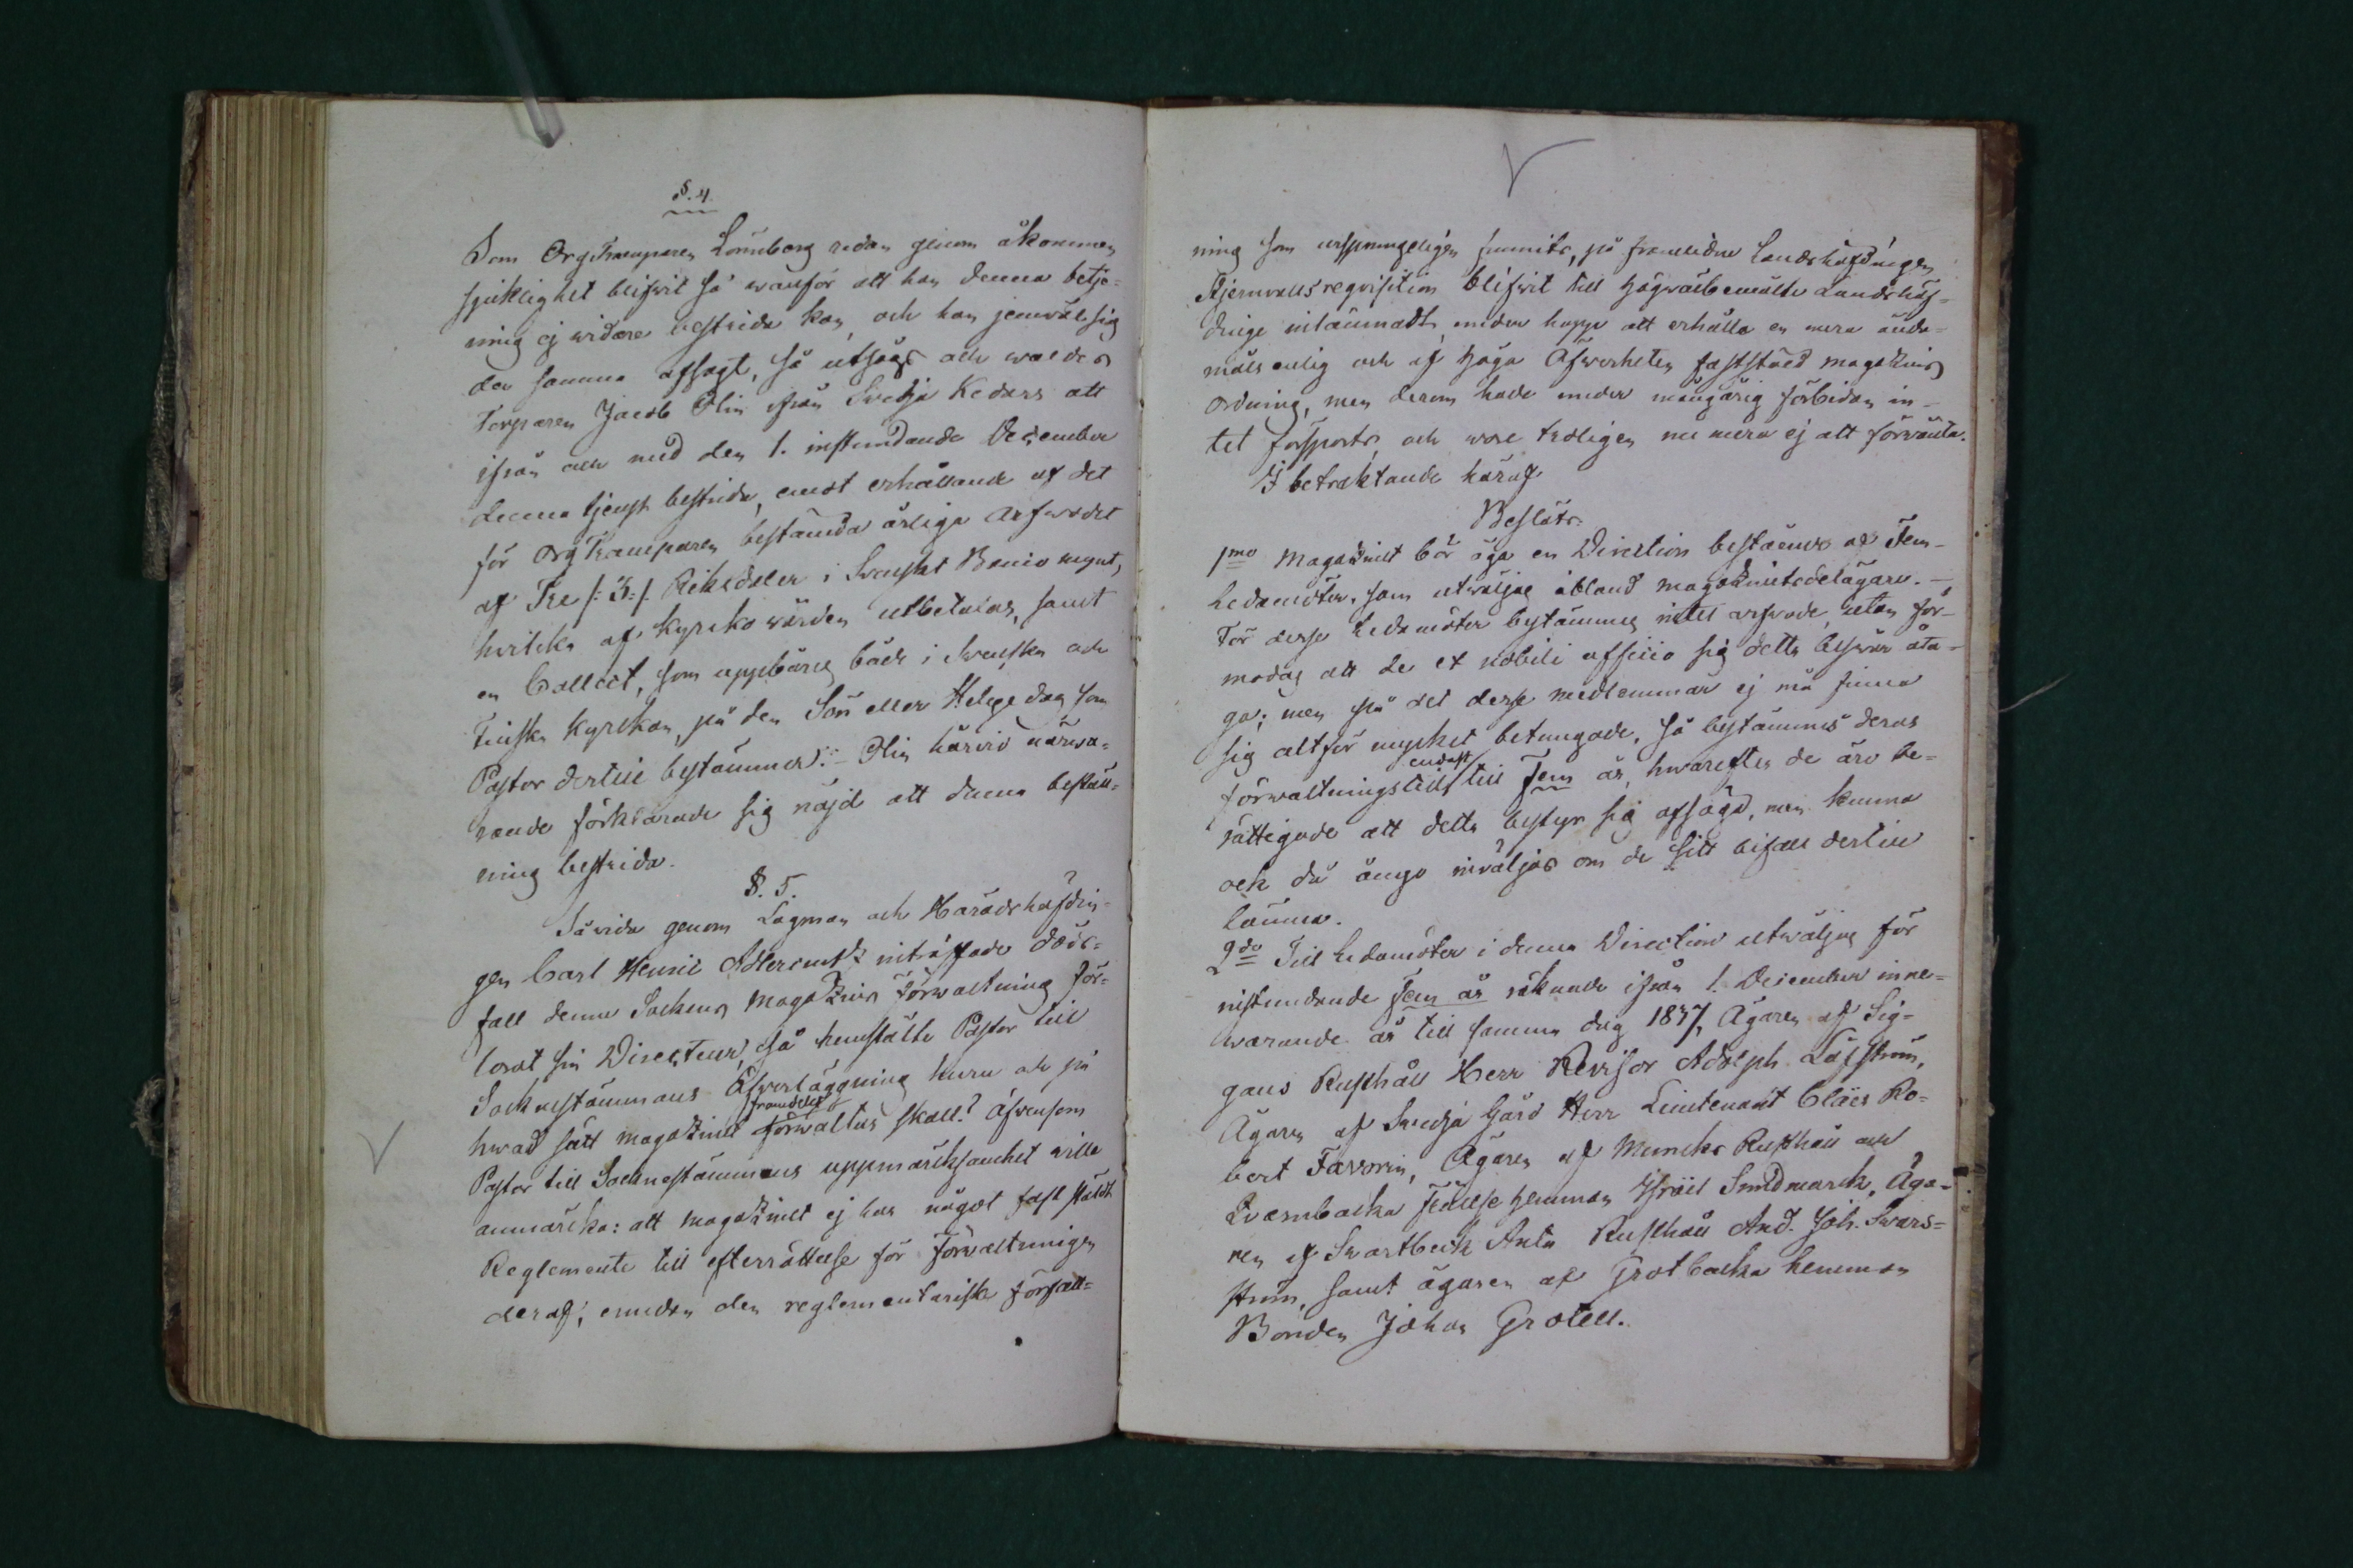 §. 4.
Som OrgTramparen Lönnberg redan genom åkommen
sjuklighet blifvit så wanför att han denna betje-
ning ej widare bestrida kan, och han jemväl sig
den samma afsagt, så utsågs och waldes
Torparen Jacob Olin ifrån Svedja Kedars att
ifrån och med den 1. instundande December
denna tjenst bestrida, emot erhållande af det
för OrgTramparen bestämda årliga arfwodet
af Tre /: 3 :/ Riksdaler i Svenskt Banco mynt,
hvilka af Kyrkowärden utbetalas, samt
en Collect, som uppbäres både i Svenska och
Finska Kyrkan, på den Sön eller Helgedag som
Pastor dertill bestämmer. – Olin härvid närva-
rande förklarade sig nöjd att denna beställ-
ning bestrida.
§. 5.
Såvida genom Lagman och Häradshöfdin-
gen Carl Henric Adlercreutz inträffade döds-
fall denne Sockens Magazins förwaltning för-
lorat sin Directeur, så hemstälte Pastor till
Socknestämmans Öfwerläggning huru och på
hwad sätt magazinet framdeles förwaltas skall? Äfvensom
Pastor till Socknestämmans uppmärksamhet wille
anmärka: att magazinet ej har något fastställdt
Reglemente till efterrättelse för förwaltningen
deraf; emedan den reglementarisk författ-
ning som ursprungeligen funnits, på framlidne Landshöfdingen
Stjernvalls reqvisition blifvit till Högwälbemälte Landshöf-
dinge inlämnadt, under hopp att erhålla en mera ända-
måls enlig och af höga Öfwerheten faststäld magazins
Ordning, men derom hade under mångårig förbidan in-
tet försports, och wore troligen nu mera ej att förwänta.
I betraktande häraf
Beslöts:
1mo Magazinet bör äga en Direction bestående af Fem
Ledamöter, som utwäljas ibland magazinets delägare. –
För desse Ledamöter bestämmes intet arfvode, utan för-
modas att de ex nobili officio sig detta beswär åta-
ga; men på det desse medlemmar ej må finna
sig altför mycket betungade, så bestämmes deras
förwaltningstid endast till Fem år, hwarefter de äro be-
rättigade att detta bestyr sig afsäga, men kunna
ock då ånyo inväljas om de sitt bifall dertill
lämna.
2do Till Ledamöter i denna Direction utwäljes för
instundande Fem år räknade ifrån 1. December inne-
warande år till samma dag 1837, Ägaren af Sig-
gans Rusthåll Herr Revisor Adolph Löfström,
Ägaren af Svedja Gård Herr Lieutenant Claës Ro-
bert Favorin, Ägaren af Muncks Rusthåll och
Qvarnbacka Hemman Israël Smedmarck, Äga-
ren af Svartbeck Anta Rusthåll And. Joh. Svars-
ström, samt ägaren af Grotbacka hemman
Bonden Johan Grotell.